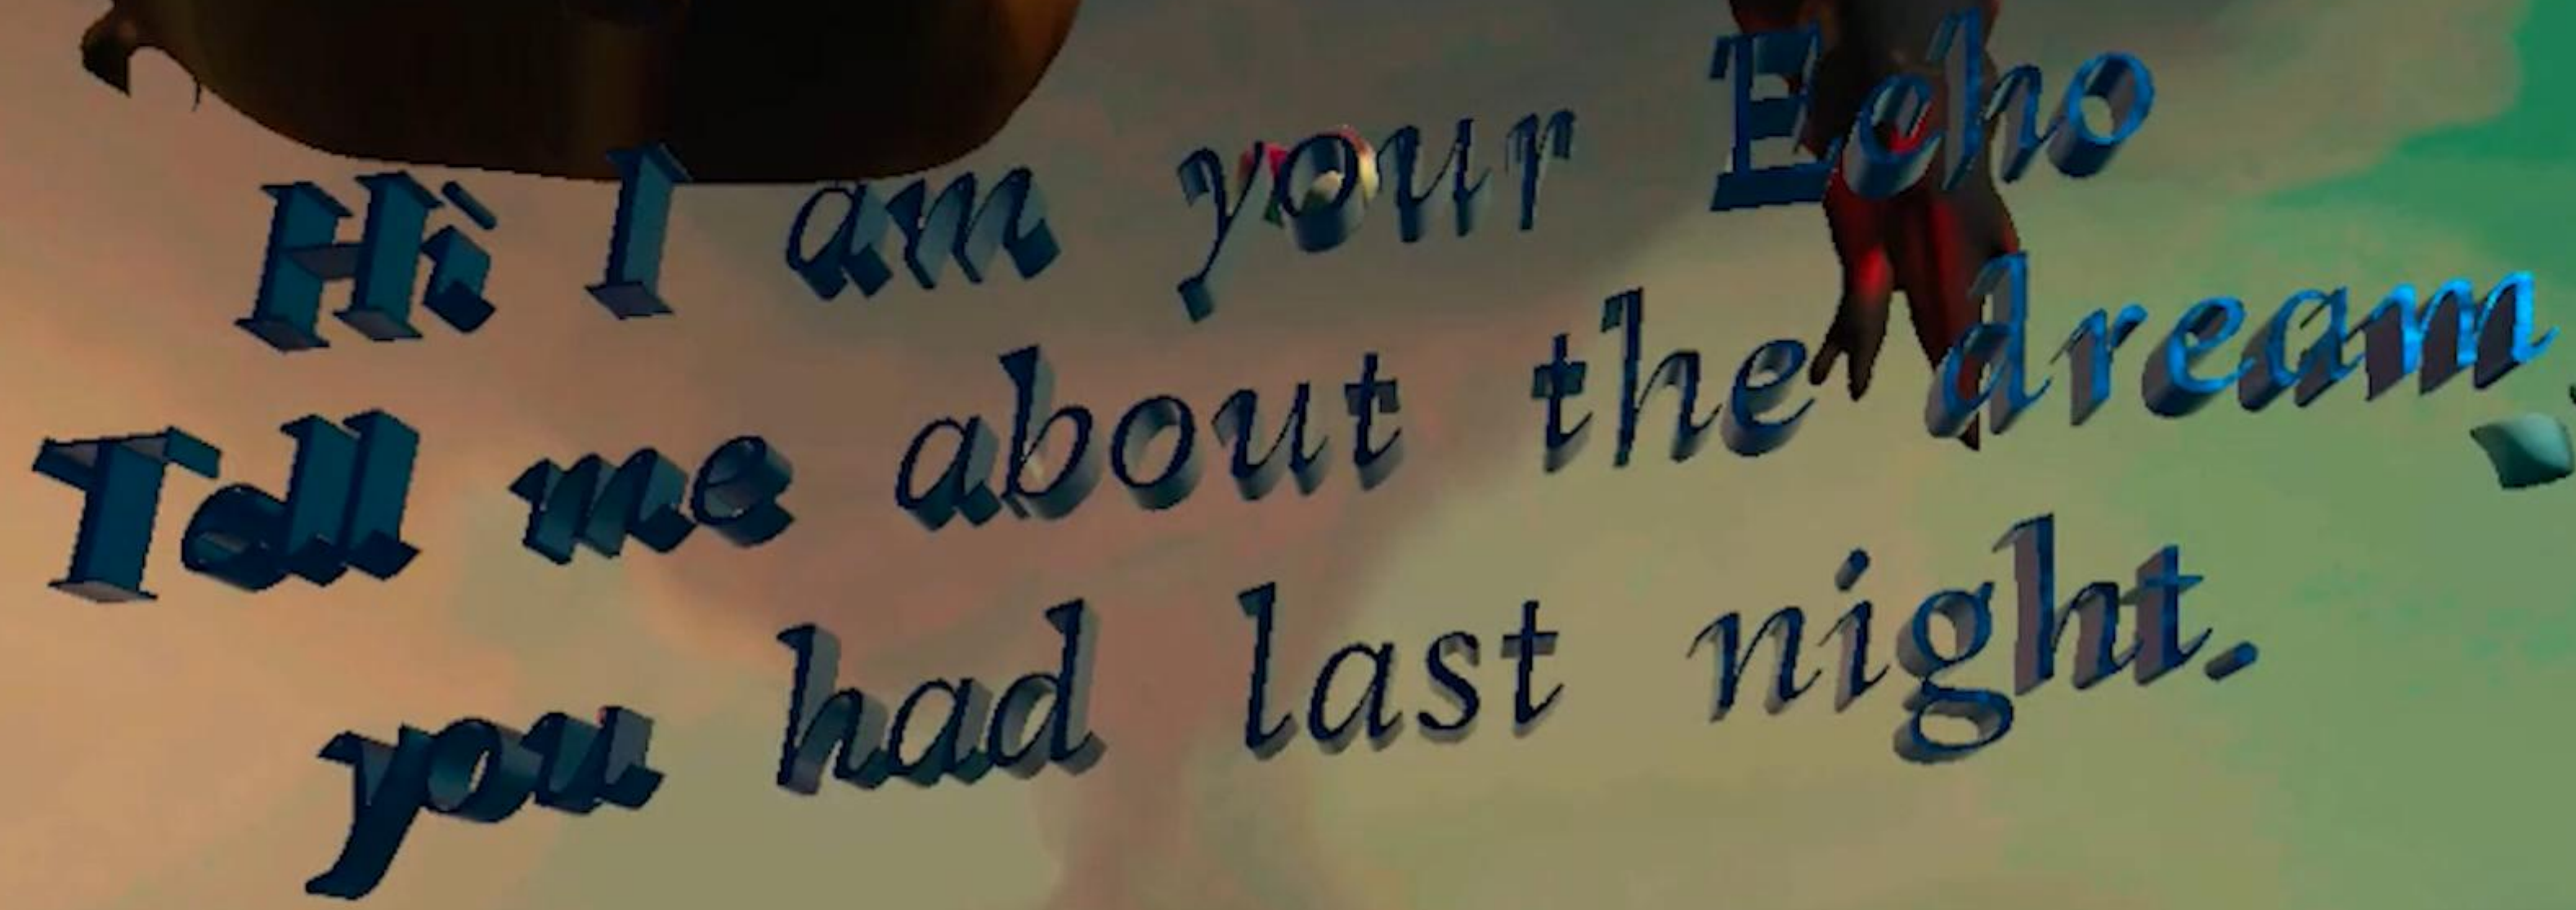 Hi I am your Echo
Tell me about the dream
you had last night.